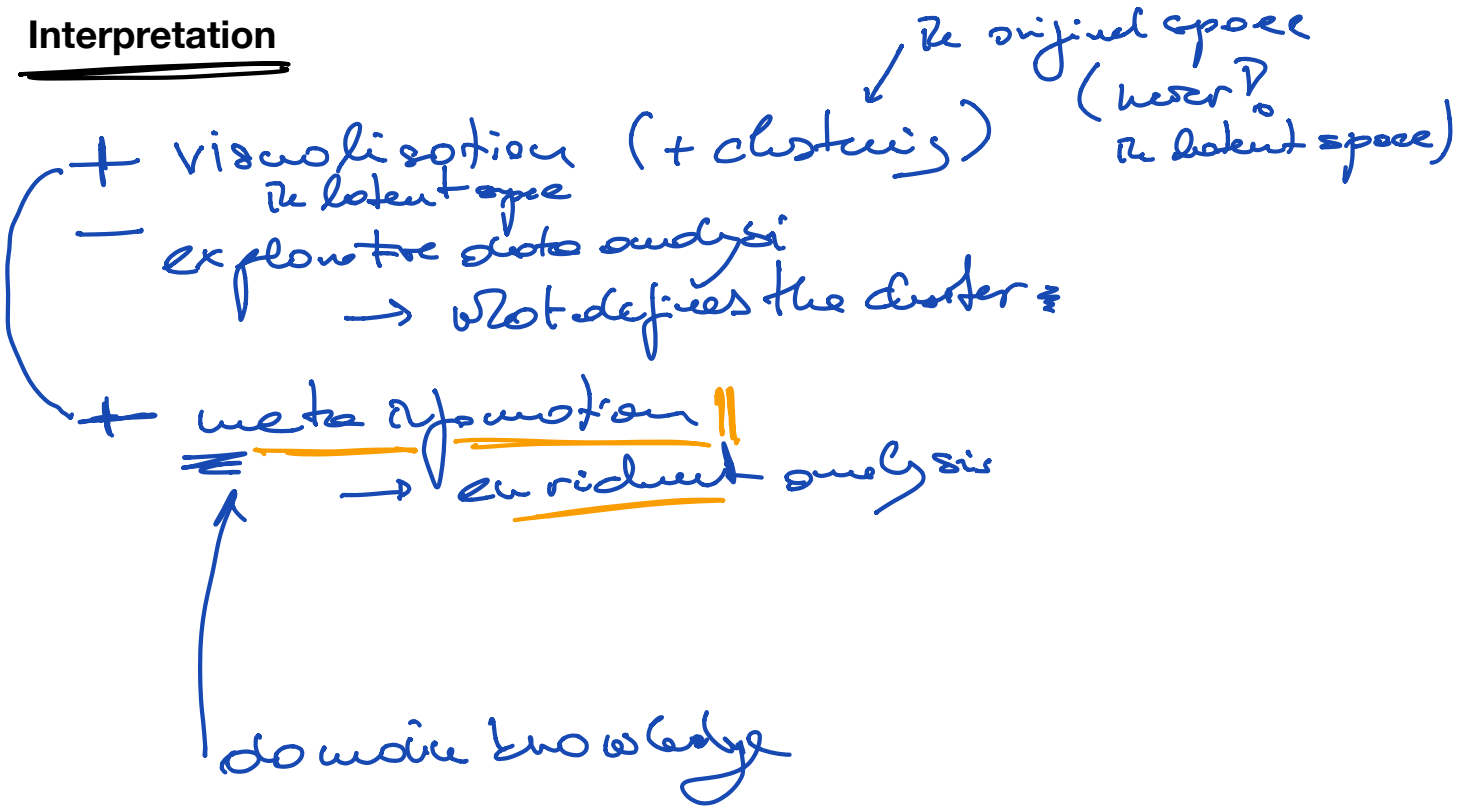 Interpretation
in original space
(never!
in latent space)
+ visualisation (+ clustering)
in latent space
- explorative data analysi
→ what defines the cluster
+ meta information !!
→ enrichment analysis
domain knowledge